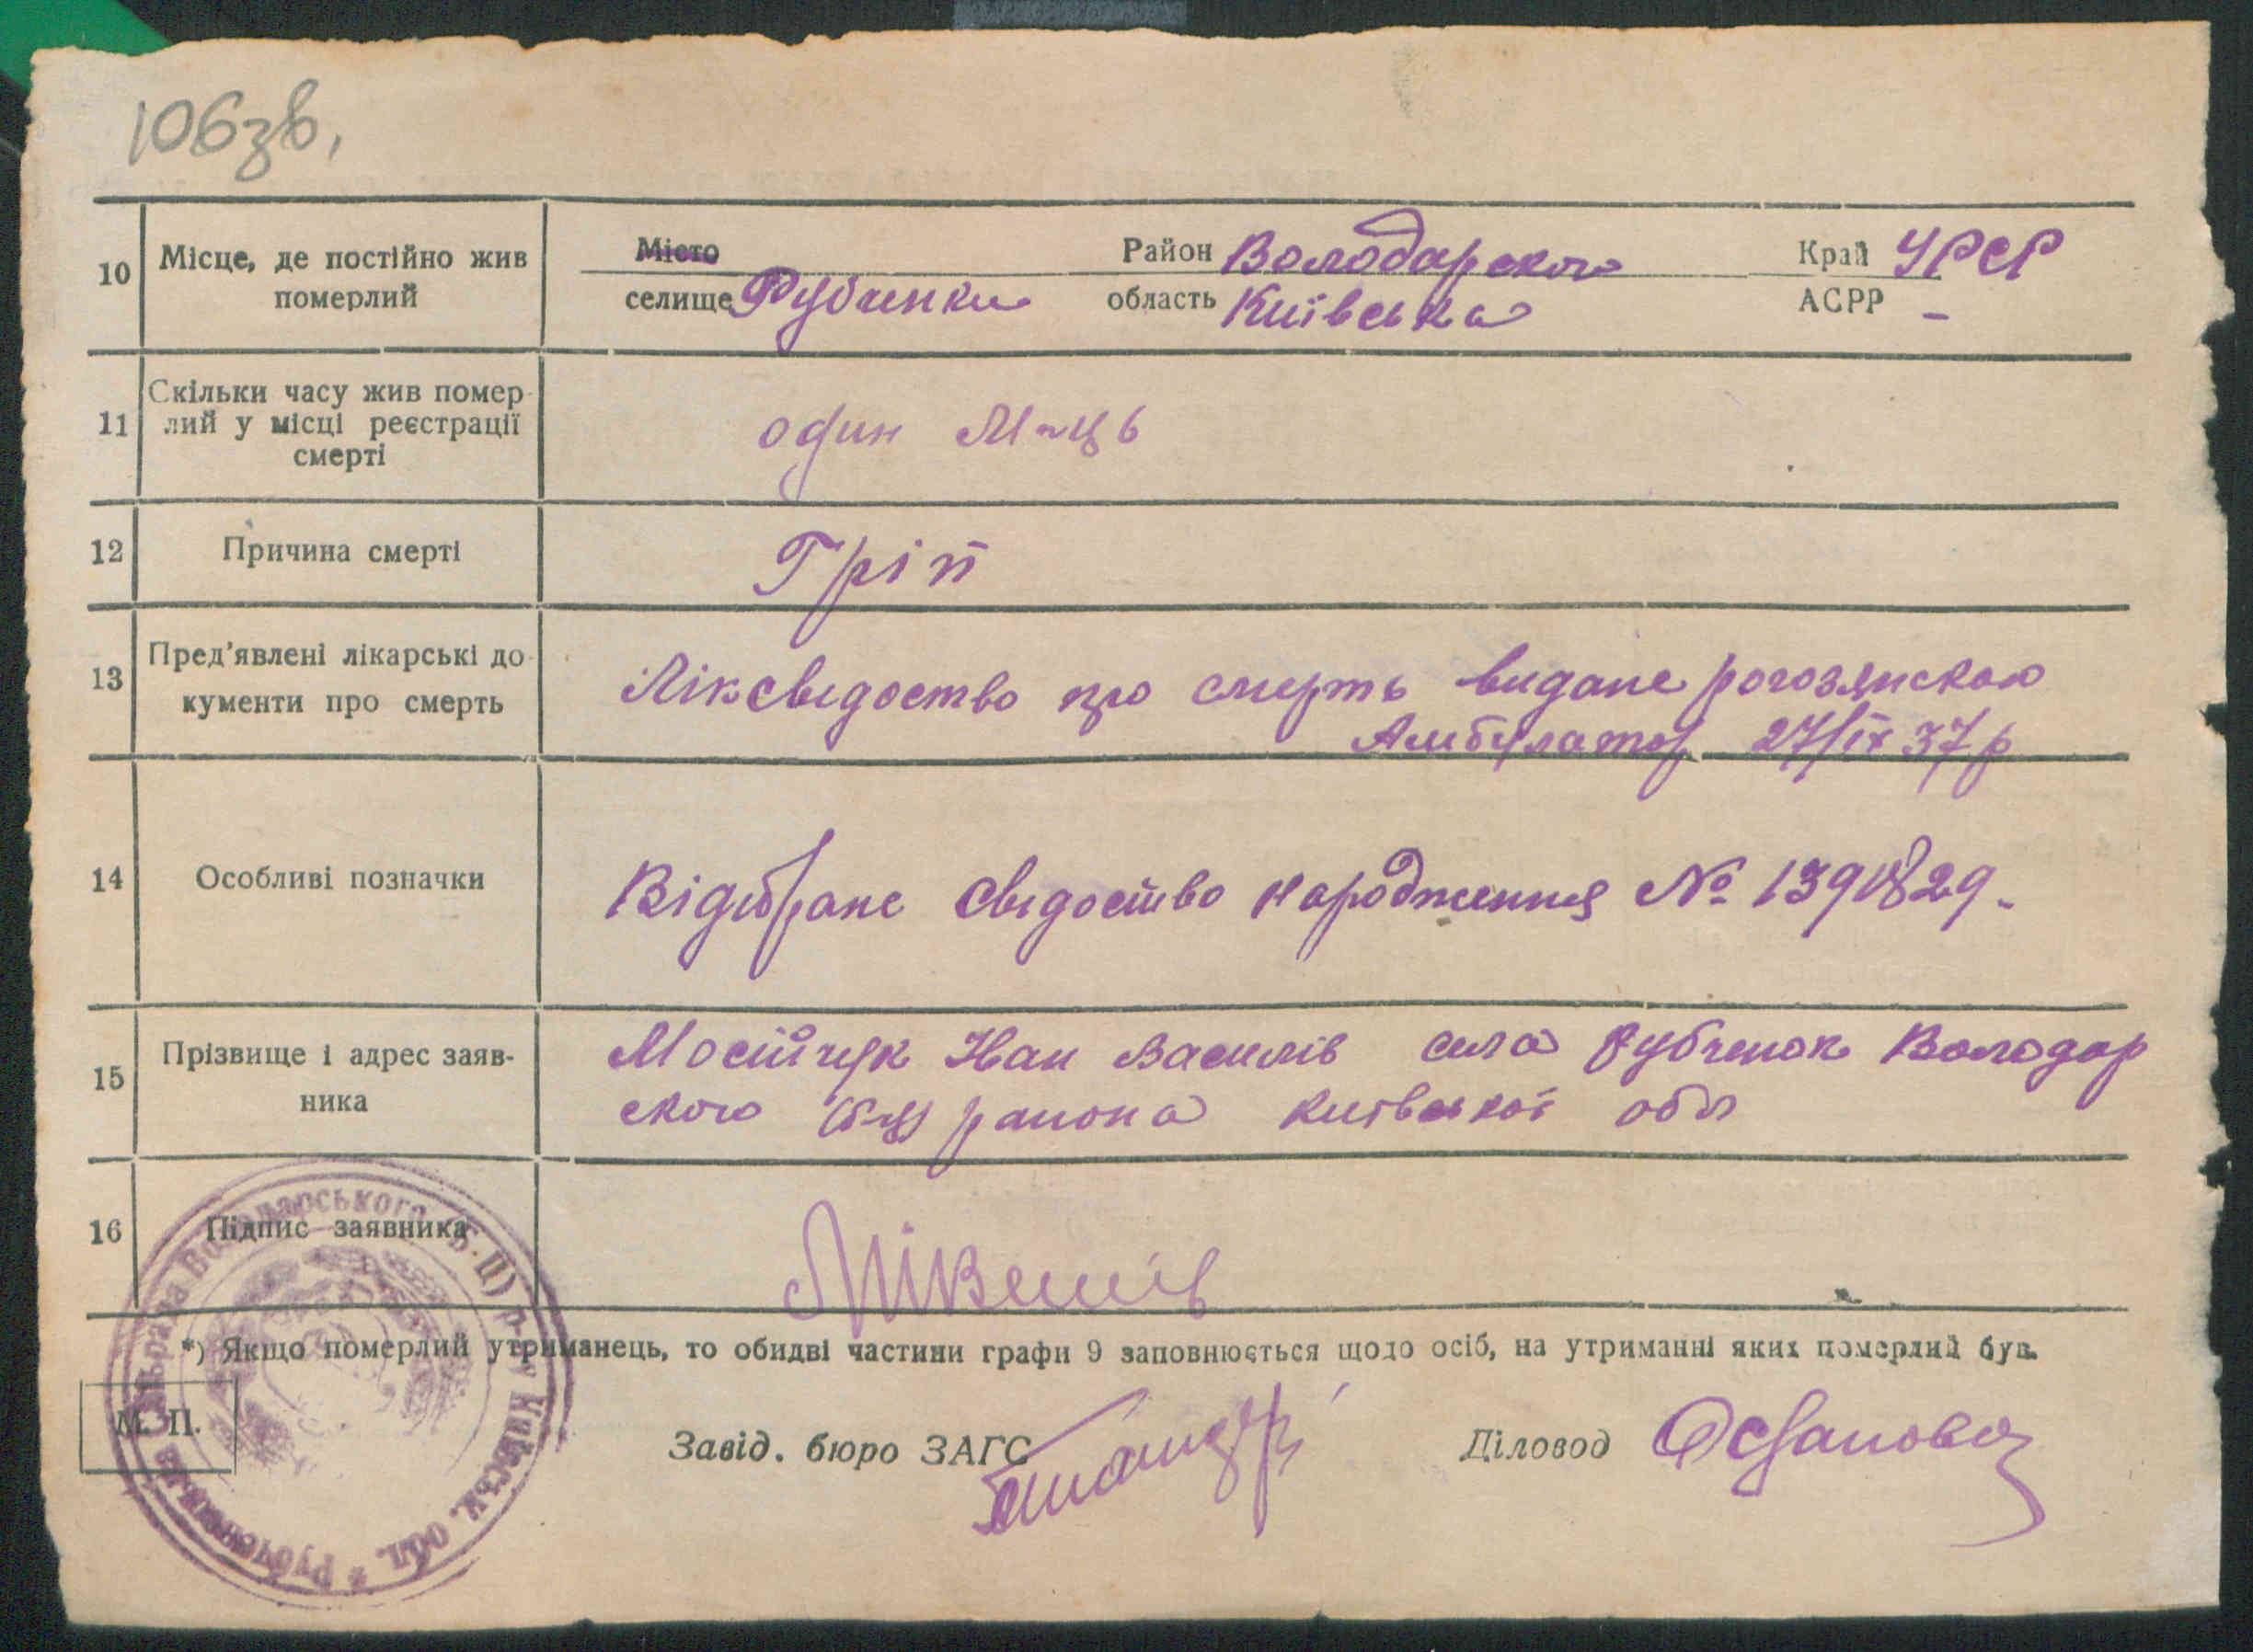 106зв.
10 Місце, де постійно жив померлий
Місто Район Володарского Край УРСР
селище Рубченки область Київська АСРР –
11 Скільки часу жив помер-
лий у місці реєстрації
смерті
один М-ць
12 Причина смерті Гріп
13 Пред'явлені лікарські до-
кументи про смерть
Ліксвідоство про смерть видане рогозянскою
Амбулатор 27/ІХ 37 р
14 Особливі позначки Відібране свідоство народження №
15 Прізвище і адрес заяв-
ника
Мосійчук Іван Василів села Рубченок Володар
ского (б-ц) района київської обл
16 Підпис заявника
*) Якщо померлий утриманець, то обидві частини графи 9 заповнюється щодо осіб, на утриманні яких померлий був.
М. П. Завід. бюро ЗАГС Діловод
Рубченківська сільрада Володарського (Б.-Ц) р-ну Київськ. обл. *